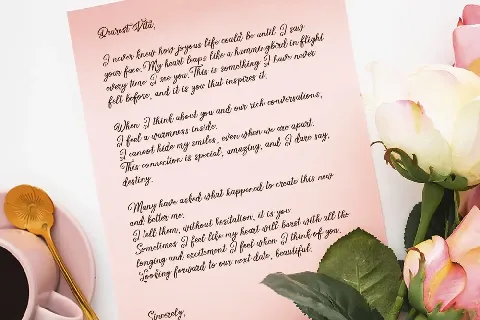 Dearest Vita,
I never knew how joyous life could be until I saw
your face. My heart leaps like a hummingbird in flight
every time I see you. This is something I have never
felt before, and it is you that inspires it.
When I think about you and our rich conversations,
I feel a warmness inside.
I cannot hide my smiles, even when we are apart.
This connection is special, amazing, and I dare say,
destiny.
Many have asked what happened to create this new
and better me.
I tell them, without hesitation, it is you.
Sometimes I feel like my heart will burst with all the
longing and excitement I feel when I think of you.
Looking forward to our next date, beautiful.
Sincerely,